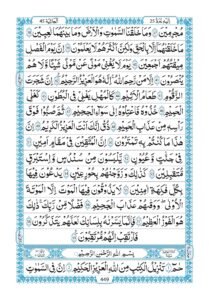 الجاثية ٤٥ اليه يرد ٢٥
مُجْرِمِينَ ۝ وَمَا خَلَقْنَا السَّمٰوٰتِ وَالْاَرْضَ وَمَا بَيْنَهُمَا لٰعِبِيْنَ ۝
مَا خَلَقْنٰهُمَا اِلَّا بِالْحَقِّ وَلٰكِنَّ اَكْثَرَهُمْ لَا يَعْلَمُوْنَ ۝ اِنَّ يَوْمَ الْفَصْلِ
مِيْقَاتُهُمْ اَجْمَعِيْنَ ۝ يَوْمَ لَا يُغْنِيْ مَوْلًى عَنْ مَّوْلًى شَيْـًٔا وَّلَا هُمْ
يُنْصَرُوْنَ ۝ اِلَّا مَنْ رَّحِمَ اللّٰهُ ؕ اِنَّهٗ هُوَ الْعَزِيْزُ الرَّحِيْمُ ۝ اِنَّ شَجَرَتَ
الزَّقُّوْمِ ۝ طَعَامُ الْاَثِيْمِ ۝ كَالْمُهْلِ ۛ يَغْلِيْ فِي الْبُطُوْنِ ۝ كَغَلْيِ
الْحَمِيْمِ ۝ خُذُوْهُ فَاعْتِلُوْهُ اِلٰى سَوَآءِ الْجَحِيْمِ ۝ ثُمَّ صُبُّوْا فَوْقَ
رَاْسِهٖ مِنْ عَذَابِ الْحَمِيْمِ ۝ ذُقْ ۙ اِنَّكَ اَنْتَ الْعَزِيْزُ الْكَرِيْمُ ۝ اِنَّ
هٰذَا مَا كُنْتُمْ بِهٖ تَمْتَرُوْنَ ۝ اِنَّ الْمُتَّقِيْنَ فِيْ مَقَامٍ اَمِيْنٍ ۝
فِيْ جَنّٰتٍ وَّعُيُوْنٍ ۝ يَّلْبَسُوْنَ مِنْ سُنْدُسٍ وَّاِسْتَبْرَقٍ
مُّتَقٰبِلِيْنَ ۝ كَذٰلِكَ ۫ وَزَوَّجْنٰهُمْ بِحُوْرٍ عِيْنٍ ۝ يَدْعُوْنَ فِيْهَا
بِكُلِّ فَاكِهَةٍ اٰمِنِيْنَ ۝ لَا يَذُوْقُوْنَ فِيْهَا الْمَوْتَ اِلَّا الْمَوْتَةَ
الْاُوْلٰى ۚ وَوَقٰىهُمْ عَذَابَ الْجَحِيْمِ ۝ فَضْلًا مِّنْ رَّبِّكَ ؕ ذٰلِكَ
هُوَ الْفَوْزُ الْعَظِيْمُ ۝ فَاِنَّمَا يَسَّرْنٰهُ بِلِسَانِكَ لَعَلَّهُمْ يَتَذَكَّرُوْنَ ۝
فَارْتَقِبْ اِنَّهُمْ مُّرْتَقِبُوْنَ ۝
بِسْمِ اللّٰهِ الرَّحْمٰنِ الرَّحِيْمِ
حٰمٓ ۝ تَنْزِيْلُ الْكِتٰبِ مِنَ اللّٰهِ الْعَزِيْزِ الْحَكِيْمِ ۝ اِنَّ فِي السَّمٰوٰتِ
449